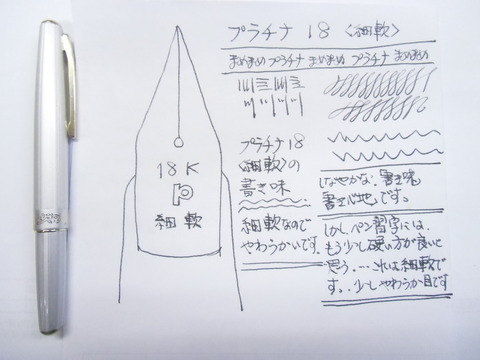 プラチナ 18 〈細軟〉
まぬまぬ プラチナ まぬまぬ プラチナ まぬまぬ
プラチナ18
〈細軟〉の
書き味
細軟なので
やわらかいです.
しなやかな.書き味
書き心地です。
しかし.ペン習字には.
もう少し硬い方が良いと
思う.…これは細軟で
す..少しやわらか目です
18 K
P
細 軟